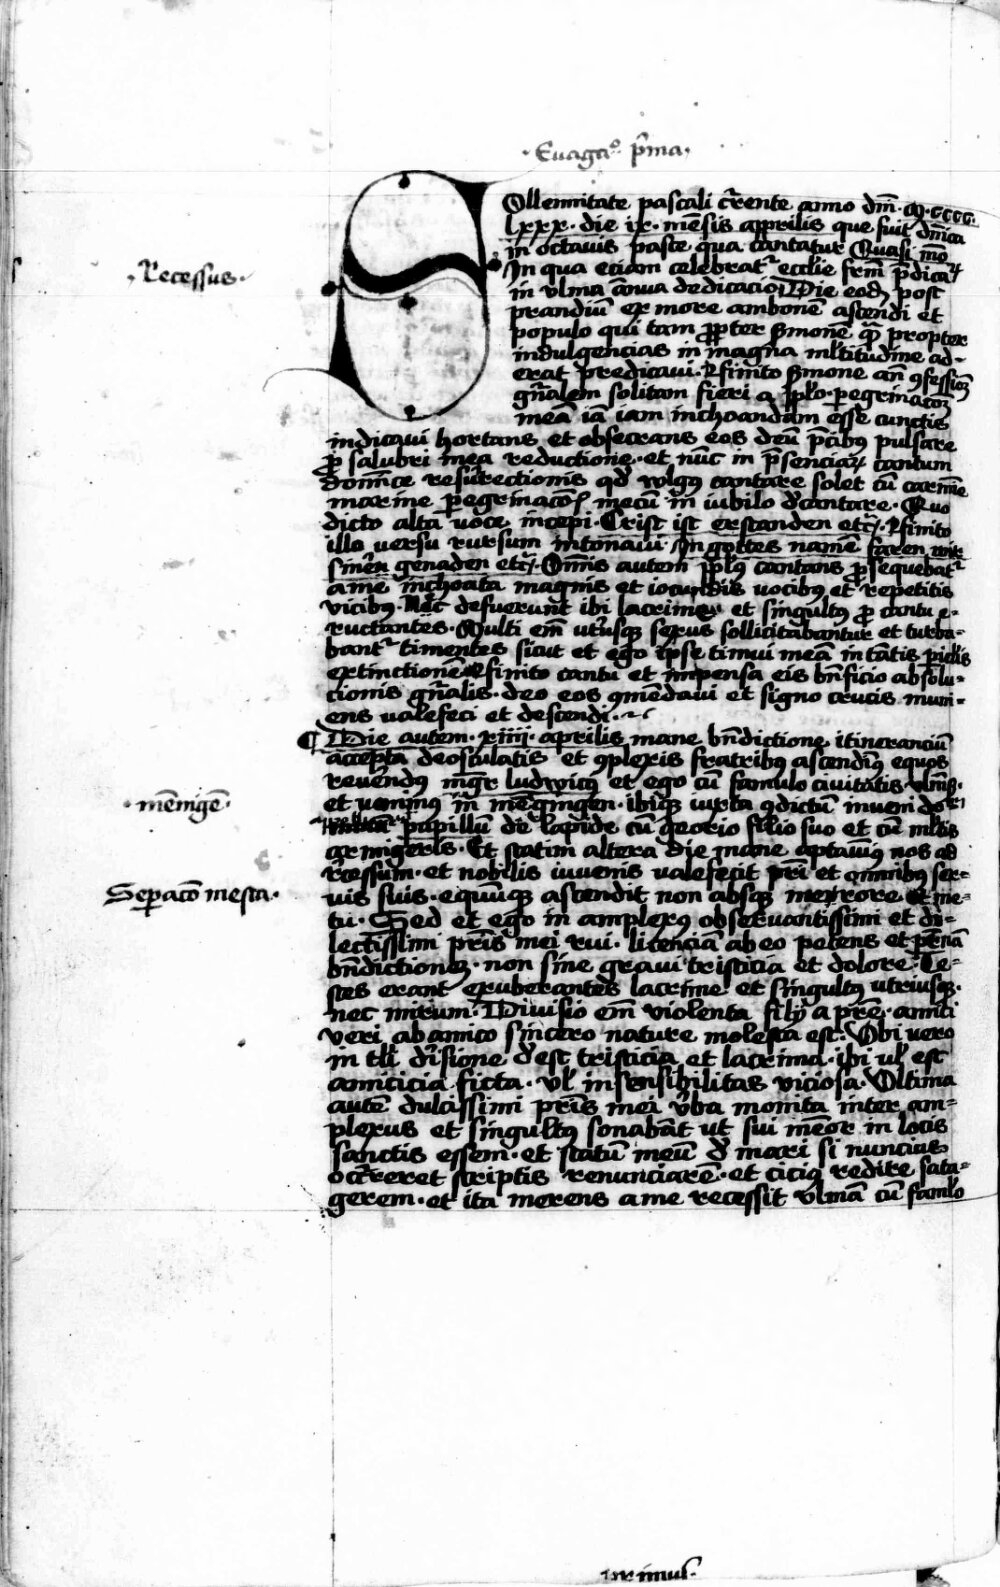 · Evagaᵒ p̄ma ·
Sollennitate pascali c̄rente anno dm̄ · M · cccc ·
lxxx · die ix · mēsis apprilis que fuit dn̄ica
in octavis pasce qua cantatur Quasi mō
In qua eciam celebrat᷑ ecclie frm̄ p̄dicaꝝ
in vlma ānua dedicacio Die eodē post
prandiū ex more ambonē ascendi et
populo qui tam ꝓpter s̄monē qm̄ propter
indulgencias in magna ml̄titudine ad-
erat predicavi · Et finito s̄mone an̄ ꝯfessioꝫ
gn̄alem solitam fieri a pplo · peregrinacōꝫ
meā iā iam inchoandam esse cunctis
· Recessus ·
indicavi hortans et obsecrans eos deū p̄cibꝰ pulsare
ꝓ salubri mea reductione · et nūc in p̄senciaꝝ cantum
dominice resurrectionis qd̄ vulgꝰ cantare solet cū carmīe
marine peregrinacōis mecū in iubilo d̄cantare · Quo
dicto alta voce incepi · Crist ist erstanden etcꝭ · Et finito
illo versu rursum intonavi · In gottes namē faren wir
sinen genaden etcꝭ · Om̄is autem pplꝰ cantans ꝓsequebat᷑
a me inchoata magnis et iocundis vocibꝰ et repetitis
vicibꝰ · Nec defuerunt ibi lacrime et singultꝰ ꝓ cantu e-
ructantes · Multi em̄ utriusqꝫ sexus sollicitabantur et turba-
bant᷑ timentes sicut et ego ip̄se timui meā in tātis piclis
extinctionē Et finito cantu et impensa eis bn̄ficio absolu-
cionis gn̄alis · deo eos ꝯmēdavi et signo crucis muni-
ens valefeci et descendi ·
¶ Die autem · xiiii · aprilis mane bn̄dictione itinerancium
accepta deosculatis et ꝯplexis fratribꝰ ascendimꝰ equos
reverendꝰ mgr̄ ludwicꝰ et ego cū famulo civitatis vlmēs̄
et venimꝰ in mēgingen · ibiqꝫ iuxta ꝯdictū inveni do-
papillum de lapide cū georio filio suo et cū ml̄tis
armigeris · Et statim altera die mane aptavimꝰ nos ad
r̄cessum · et nobilis iuvenis valefecit pr̄i et omnibus ser-
vis suis · equūqꝫ ascendit non absqꝫ merore et me-
tu · Sed et ego in amplexꝰ observantissimi et di-
lectissimi pr̄is mei rui · licenciā ab eo petens et pr̄nā
bn̄dictioneꝫ · non sine gravi tristicia et dolore · Te-
stes erant exuberantes lacrime et singultꝰ utriusqꝫ ·
nec mirum · Divisio em̄ violenta filij a pr̄e · amici
veri ab amico sincero nature molesta est · Vbi vero
in tl̄i d̄isione d̄est tristicia et lacrima · ibi vl̄ est
amicicia ficta · vl̄ insensibilitas viciosa · Vltima
autē dulcissimi pr̄is mei v̄ba monita inter am-
plexus et singultꝰ sonabāt ut sui memor in locis
sanctis essem · et statū meū d̄ mari si nuncius
occ̄reret scriptis renunciarē · et cicius redire sata-
gerem · et ita merens a me recessit vlmā cū famlo
· mēmīgē ·
Sepacō mesta ·